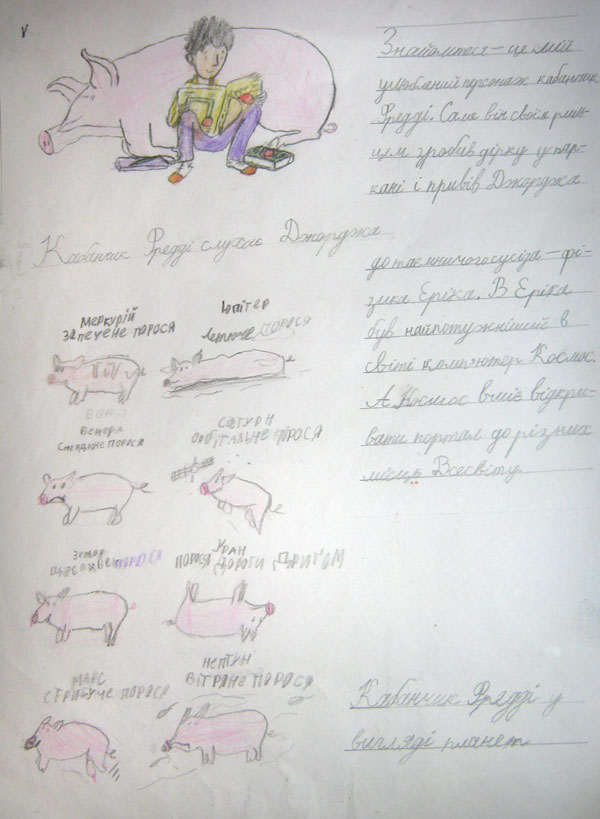 Знайомтеся – це мій
улюблений персонаж кабанчик
Фредді. Саме він своїм рин-
цем зробив дірку у пар-
кані і привів Джорджа
Кабанчик Фредді слухає Джорджа
до таємничого сусіда – фі-
зика Еріка. В Еріка
був найпотужніший в
світі комп'ютер Космос.
А Космос вмів відкри-
вати портал до різних
місць Всесвіту.
Меркурій
запечене порося
Юпітер
летюче порося
Венера
смердюче порося
Сатурн
орбітальне порося
Земля
щасливе порося
Уран
порося дороги дригом
Марс
стрибуче порося
Нептун
вітряне порося
Кабанчик Фредді у
вигляді планет